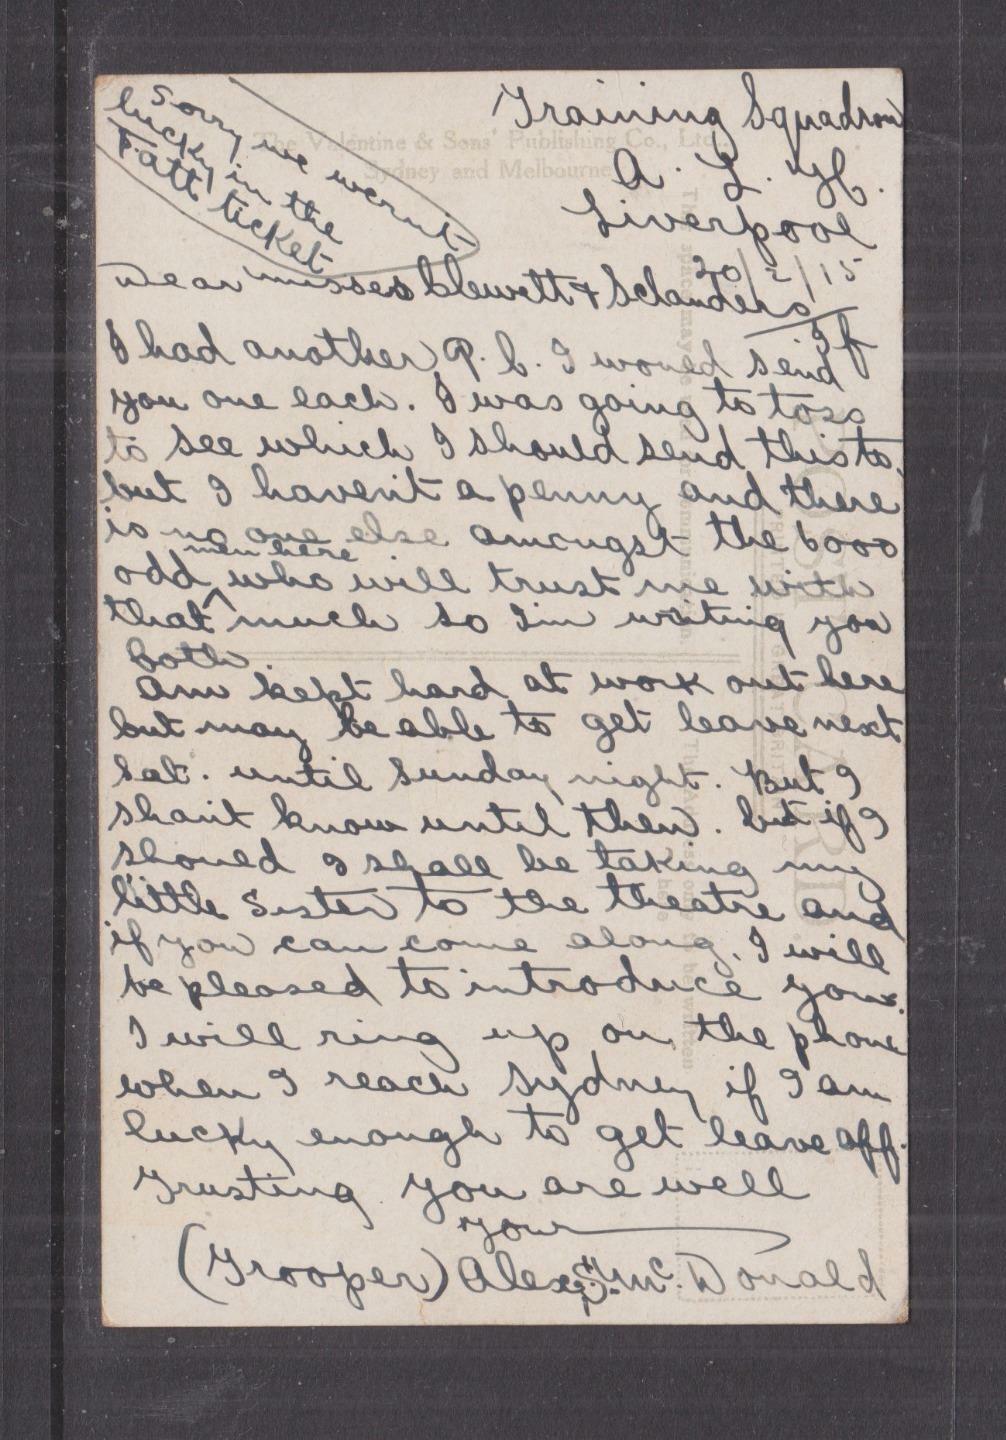 Sorry we wernit
lucky in the
Tatt ticket
The Valentine & Sons' Publishing Co., Ltd.,
Sydney and Melbourne
Training Squadron
A. L. H.
Liverpool
20/2/15
Dear misses Clewett & Schanders
If
I had another P. C. I would send
you one each. I was going to toss
to see which I should send this to,
but I haven't a penny and there
is no one else amongst the 6000
men here
odd ^ who will trust me with
that much so I'm writing you
both.
Am kept hard at work out here
but may be able to get leave next
Sat. until Sunday night. But I
shan't know until then. but if I
should I shall be taking my
little Sister to the theatre and
if you can come along, I will
be pleased to introduce you.
I will ring up on the phone
when I reach Sydney if I am
lucky enough to get leave off.
Trusting you are well
your
(Trooper) Alex. Mc. Donald